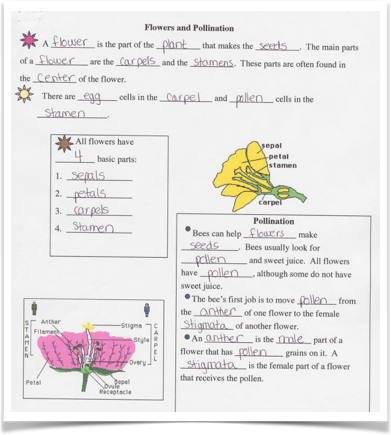 Flowers and Pollination
A flower is the part of the plant that makes the seeds. The main parts
of a flower are the carpels and the stamens. These parts are often found in
the center of the flower.
There are egg cells in the carpel and pollen cells in the
stamen.
All flowers have
4 basic parts:
1. sepals
2. petals
3. carpels
4. stamen
sepal
petal
stamen
carpel
Pollination
Bees can help flowers make
seeds. Bees usually look for
pollen and sweet juice. All flowers
have pollen, although some do not have
sweet juice.
The bee's first job is to move pollen from
the anther of one flower to the female
stigmata of another flower.
An anther is the male part of a
flower that has pollen grains on it. A
stigmata is the female part of a flower
that receives the pollen.
STAMEN
Anther
Filament
Petal
Stigma
Style
Ovary
Sepal
Ovule
Receptacle
CARPEL